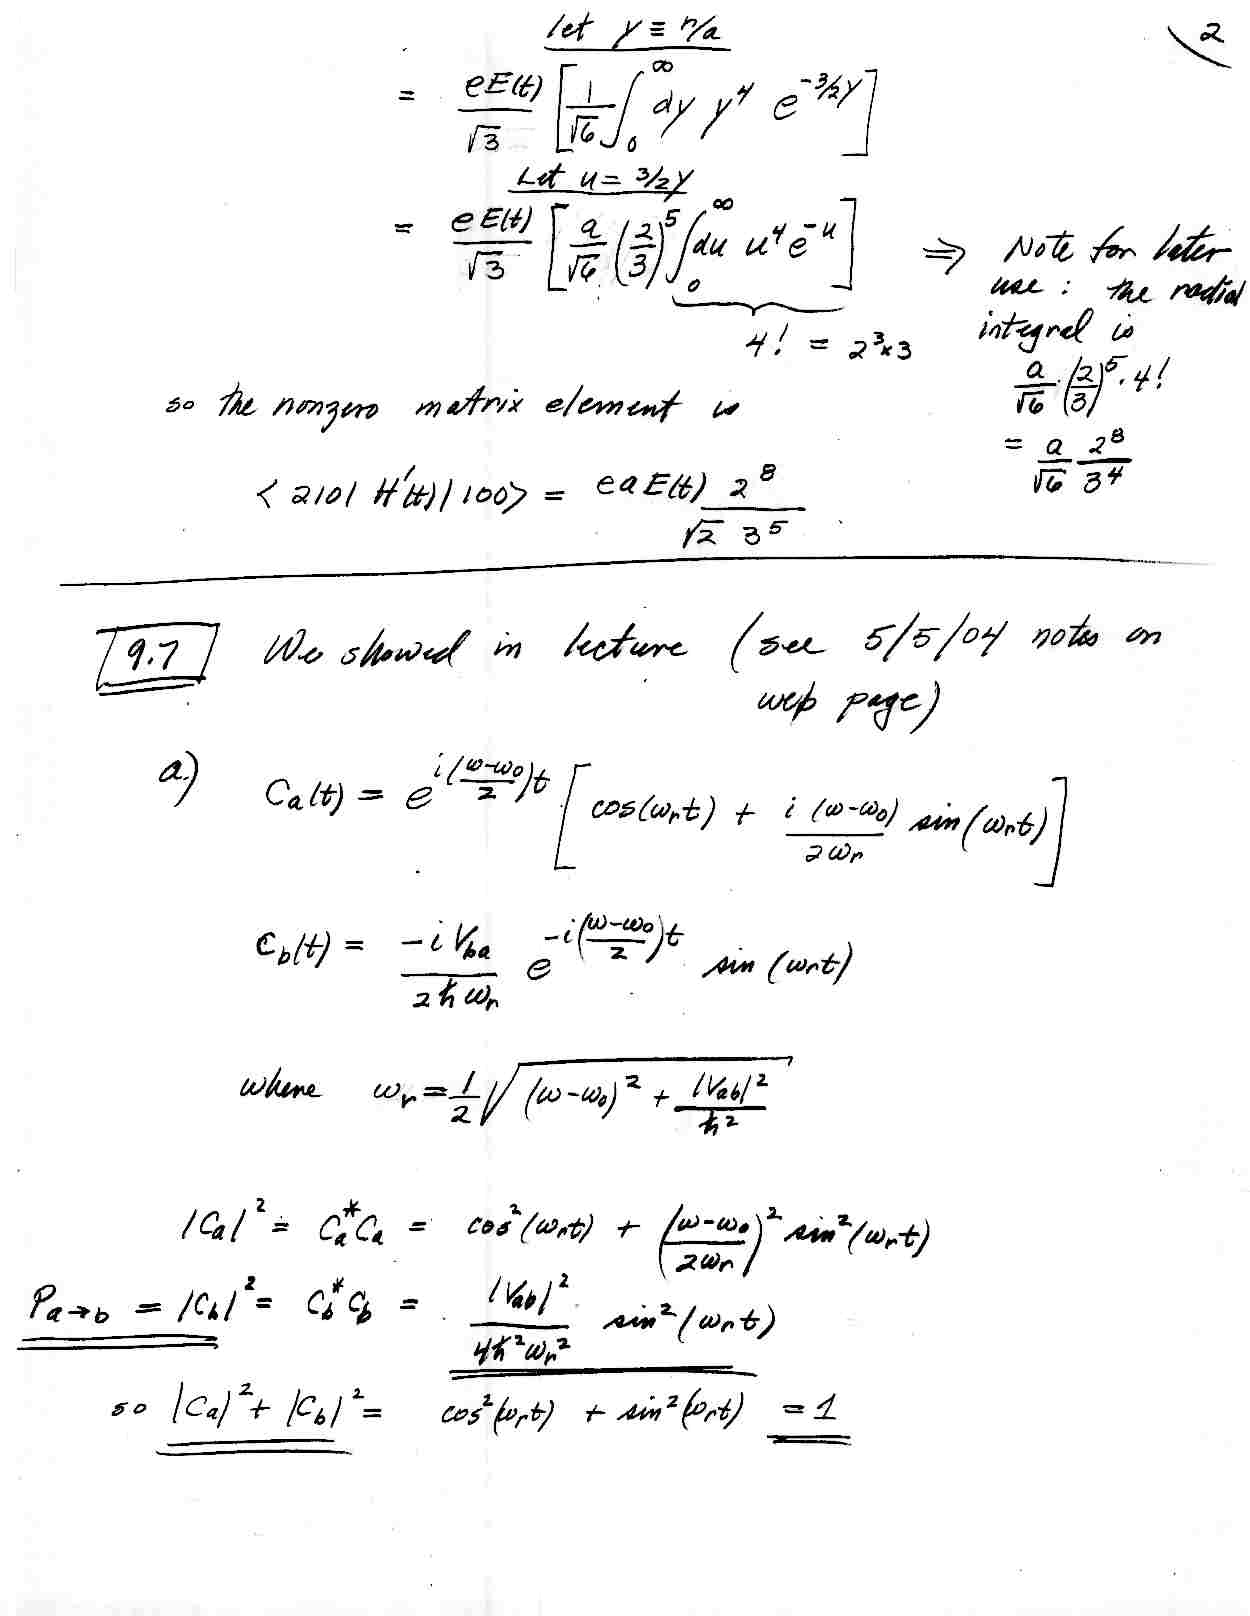 let y ≡ r/a
2
= eE(t)/√3 [ 1/√6 ∫₀^∞ dy y⁴ e^{-3/2 y} ]
Let u = 3/2 y
= eE(t)/√3 [ a/√6 (2/3)⁵ ∫₀^∞ du u⁴ e^{-u} ]
4! = 2³×3
⇒ Note for later
use : the radial
integral is
a/√6 · (2/3)⁵ · 4!
= a/√6 2⁸/3⁴
so the nonzero matrix element is
<210| H'(t) |100> = eaE(t) 2⁸/(√2 3⁵)
9.7 We showed in lecture (see 5/5/04 notes on
web page)
a.) Ca(t) = e^{i((ω-ω₀)/2)t} [ cos(ωrt) + i(ω-ω₀)/2ωr sin(ωrt) ]
Cb(t) = -iVba/2ħωr e^{-i((ω-ω₀)/2)t} sin(ωrt)
where ωr = 1/2 √((ω-ω₀)² + |Vab|²/ħ²)
|Ca|² = Ca*Ca = cos²(ωrt) + ((ω-ω₀)/2ωr)² sin²(ωrt)
Pa→b = |Cb|² = Cb*Cb = |Vab|²/4ħ²ωr² sin²(ωrt)
so |Ca|² + |Cb|² = cos²(ωrt) + sin²(ωrt) = 1